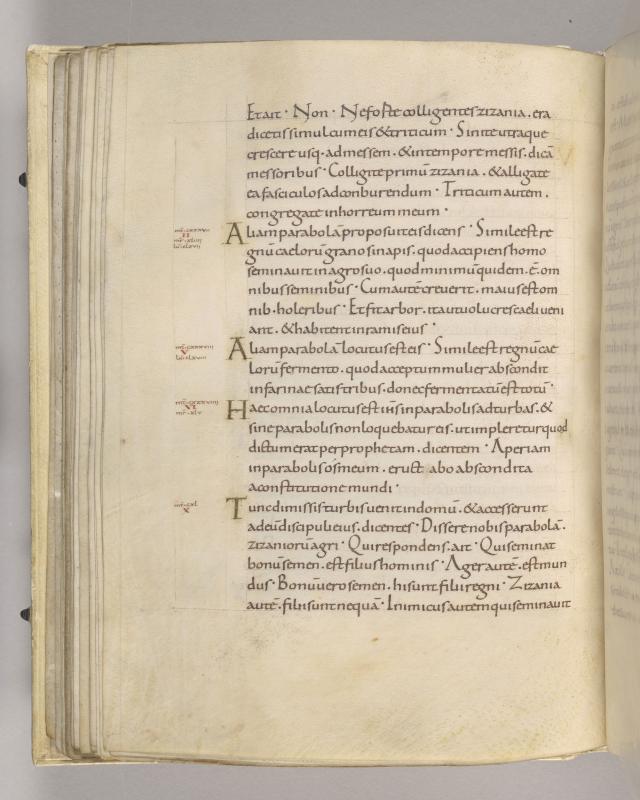 Et ait · Non · Ne forte colligentes zizania . era
dicetis simul cum eis & triticum · Sinite utraque
crescere usq· ad messem . & in tempore messis . dicā
messoribus · Colligite primū zizania . & alligate
ea fasciculos ad conburendum · Triticum autem .
congregate in horreum meum ·
Aliam parabolā proposuit eis dicens · Simile est re
gnū caelorū grano sinapis . quod accipiens homo
seminauit in agro suo . quod minimū quidem . ē . om
nibus seminibus · Cum autē creuerit . maius est om
nib· holeribus · Et fit arbor . ita ut uolucres caeli ueni
ant . & habitent in ramis eius ·
Aliam parabolā locutus est eis · Simile est regnū cae
lorū fermento . quod acceptum mulier abscondit
in farinae satis tribus . donec fermentatū est totū ·
Haec omnia locutus est ihs in parabolis ad turbas . &
sine parabolis non loquebatur eis . ut impleretur quod
dictum erat per prophetam . dicentem · Aperiam
in parabolis os meum . eructabo abscondita
a constitutione mundi ·
Tunc dimissis turbis uenit in domū . & accesserunt
ad eū discipuli eius . dicentes · Dissere nobis parabolā .
zizaniorū agri · Qui respondens . ait · Qui seminat
bonū semen . est filius hominis · Ager autē . est mun
dus · Bonū uero semen . hi sunt filii regni · Zizania
autē . filii sunt nequā · Inimicus autem qui seminauit